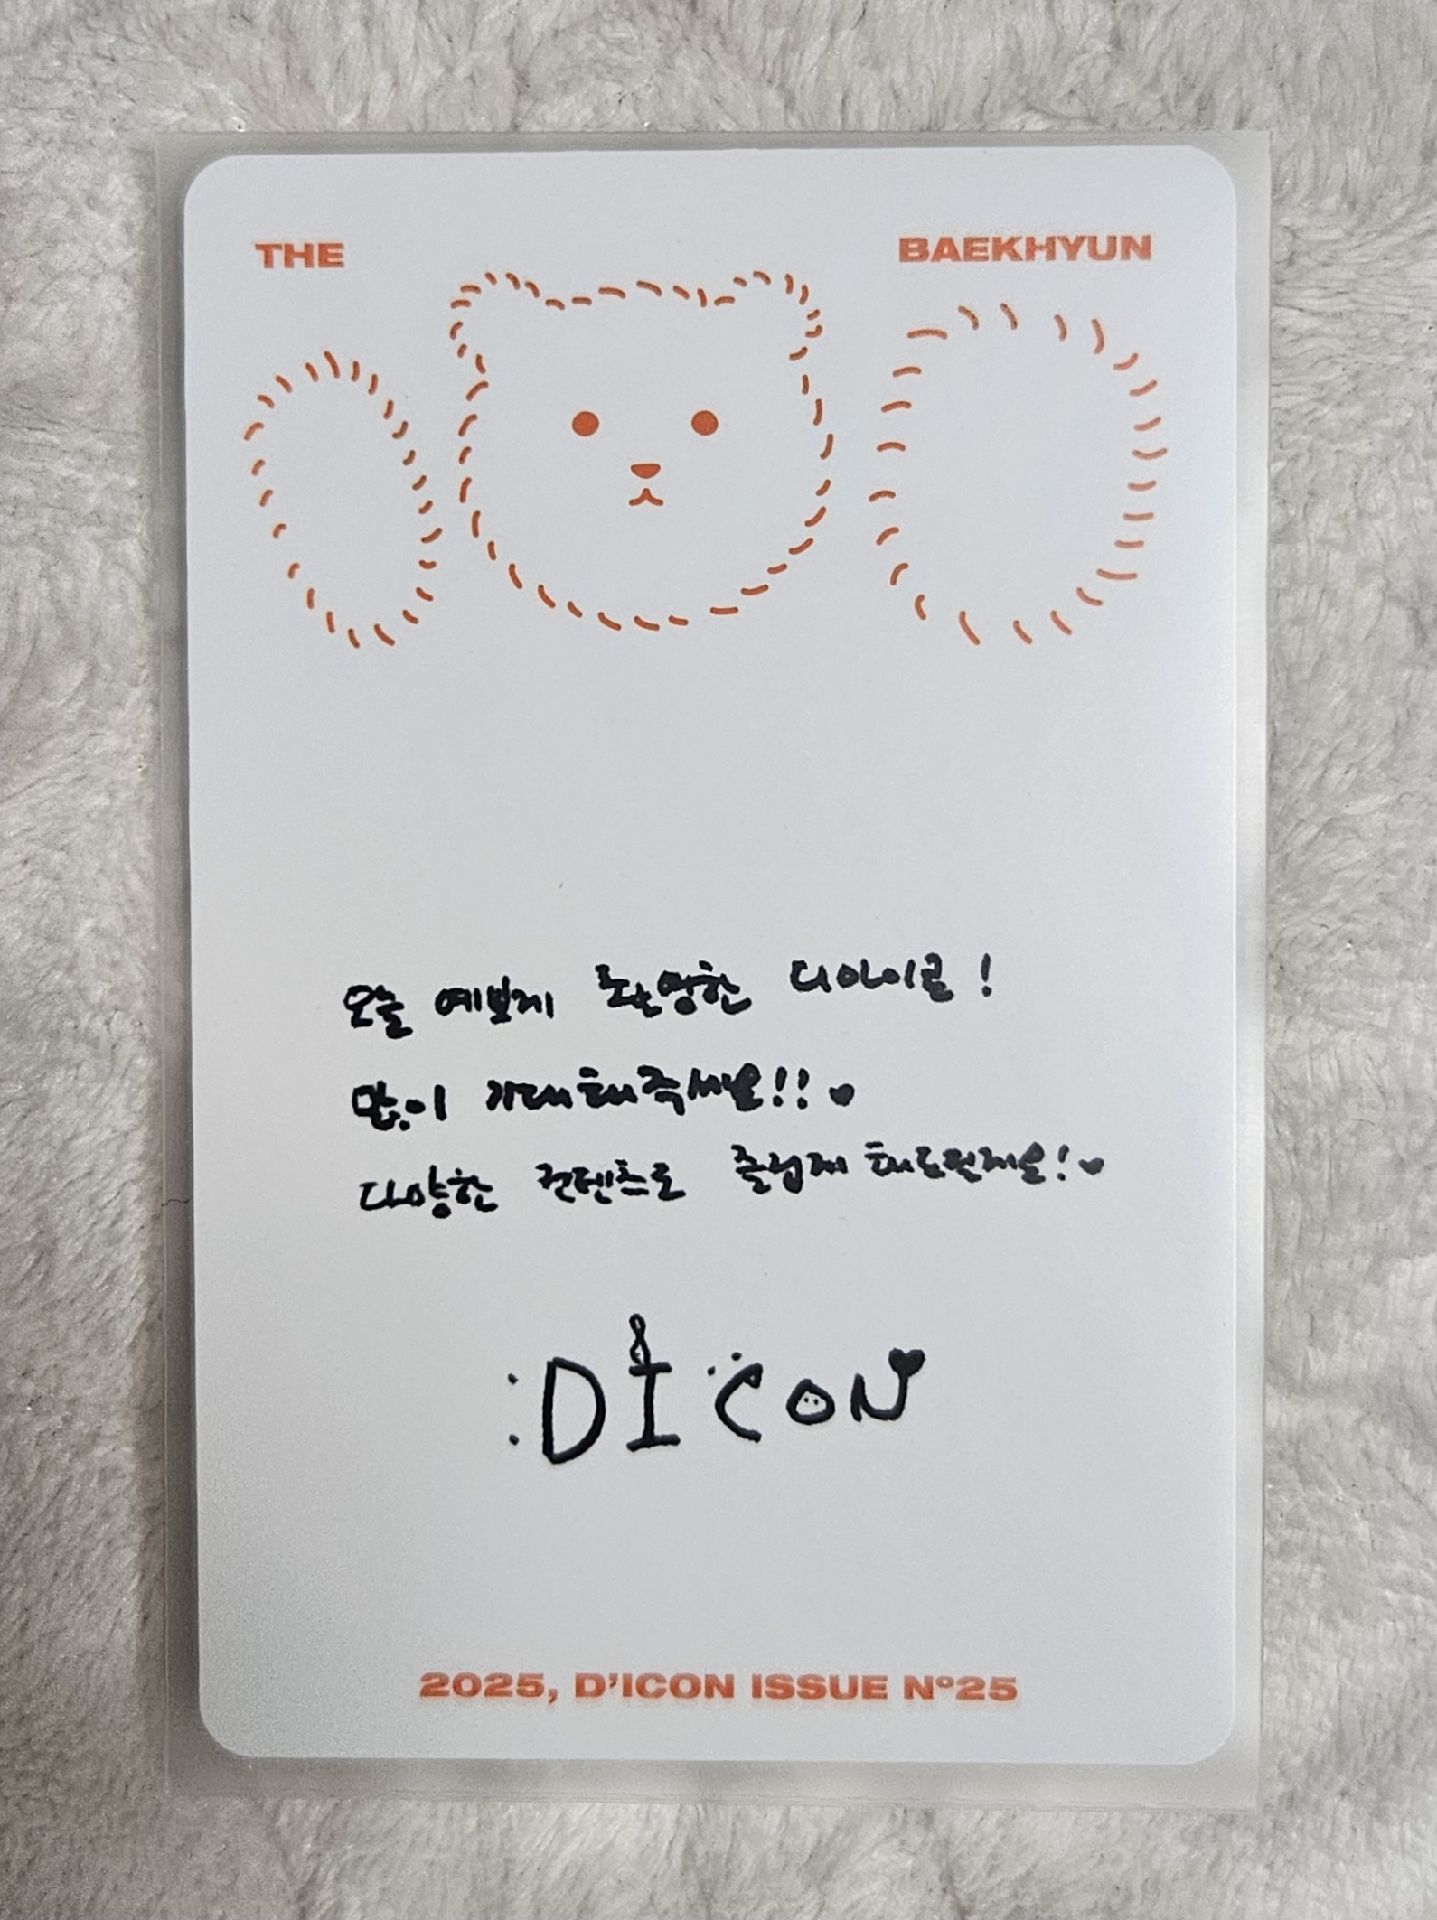 THE
BAEKHYUN
오늘 예쁘게 촬영한 디아이콘!
많이 기대해주세요!!♥
다양한 컨텐츠로 즐겁게 해드릴게요!♥
:DICON
2025, D'ICON ISSUE Nº25